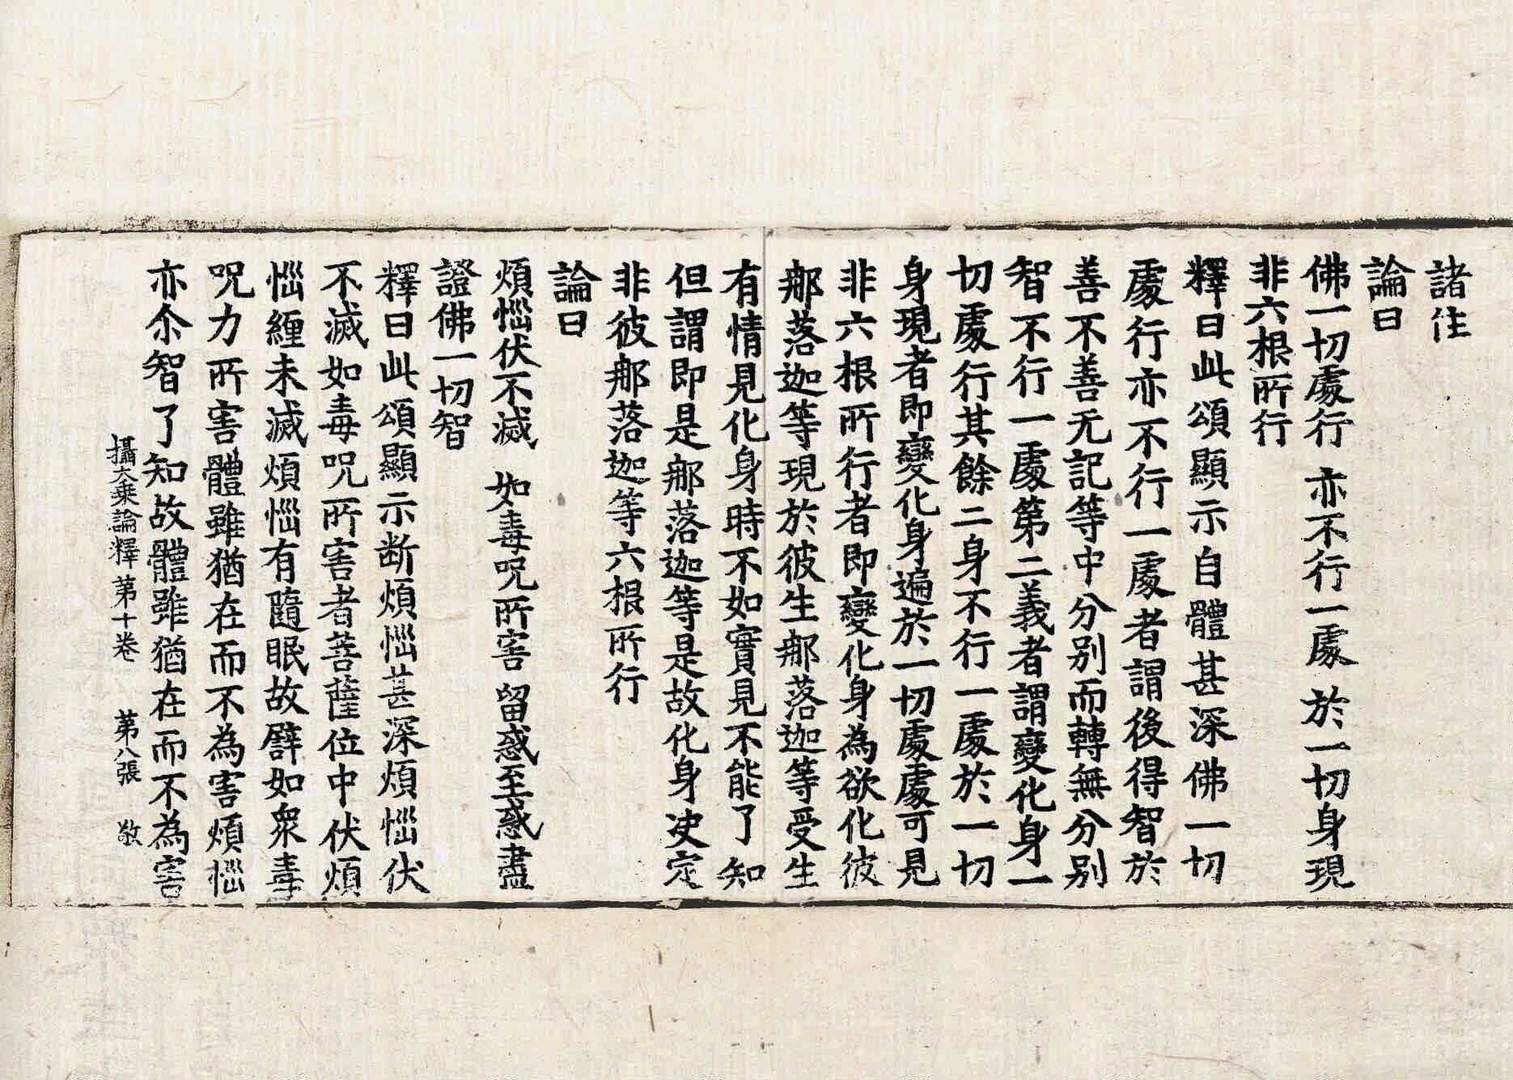 諸住
論曰
佛一切處行 亦不行一處 於一切身現
非六根所行
釋曰此頌顯示自體甚深佛一切
處行亦不行一處者謂後得智於
善不善无記等中分別而轉無分別
智不行一處第二義者謂變化身一
切處行其餘二身不行一處於一切
身現者即變化身遍於一切處處可見
非六根所行者即變化身為欲化彼
那落迦等現於彼生那落迦等受生
有情見化身時不如實見不能了知
但謂即是那落迦等是故化身决定
非彼那落迦等六根所行
論曰
煩惱伏不滅 如毒呪所害 留惑至惑盡
證佛一切智
釋曰此頌顯示断煩惱甚深煩惱伏
不滅如毒呪所害者菩薩位中伏煩
惱纏未滅煩惱有隨眠故譬如衆毒
呪力所害體雖猶在而不為害煩惱
亦尒智了知故體雖猶在而不為害
攝大乘論釋第十卷 第八張 敬